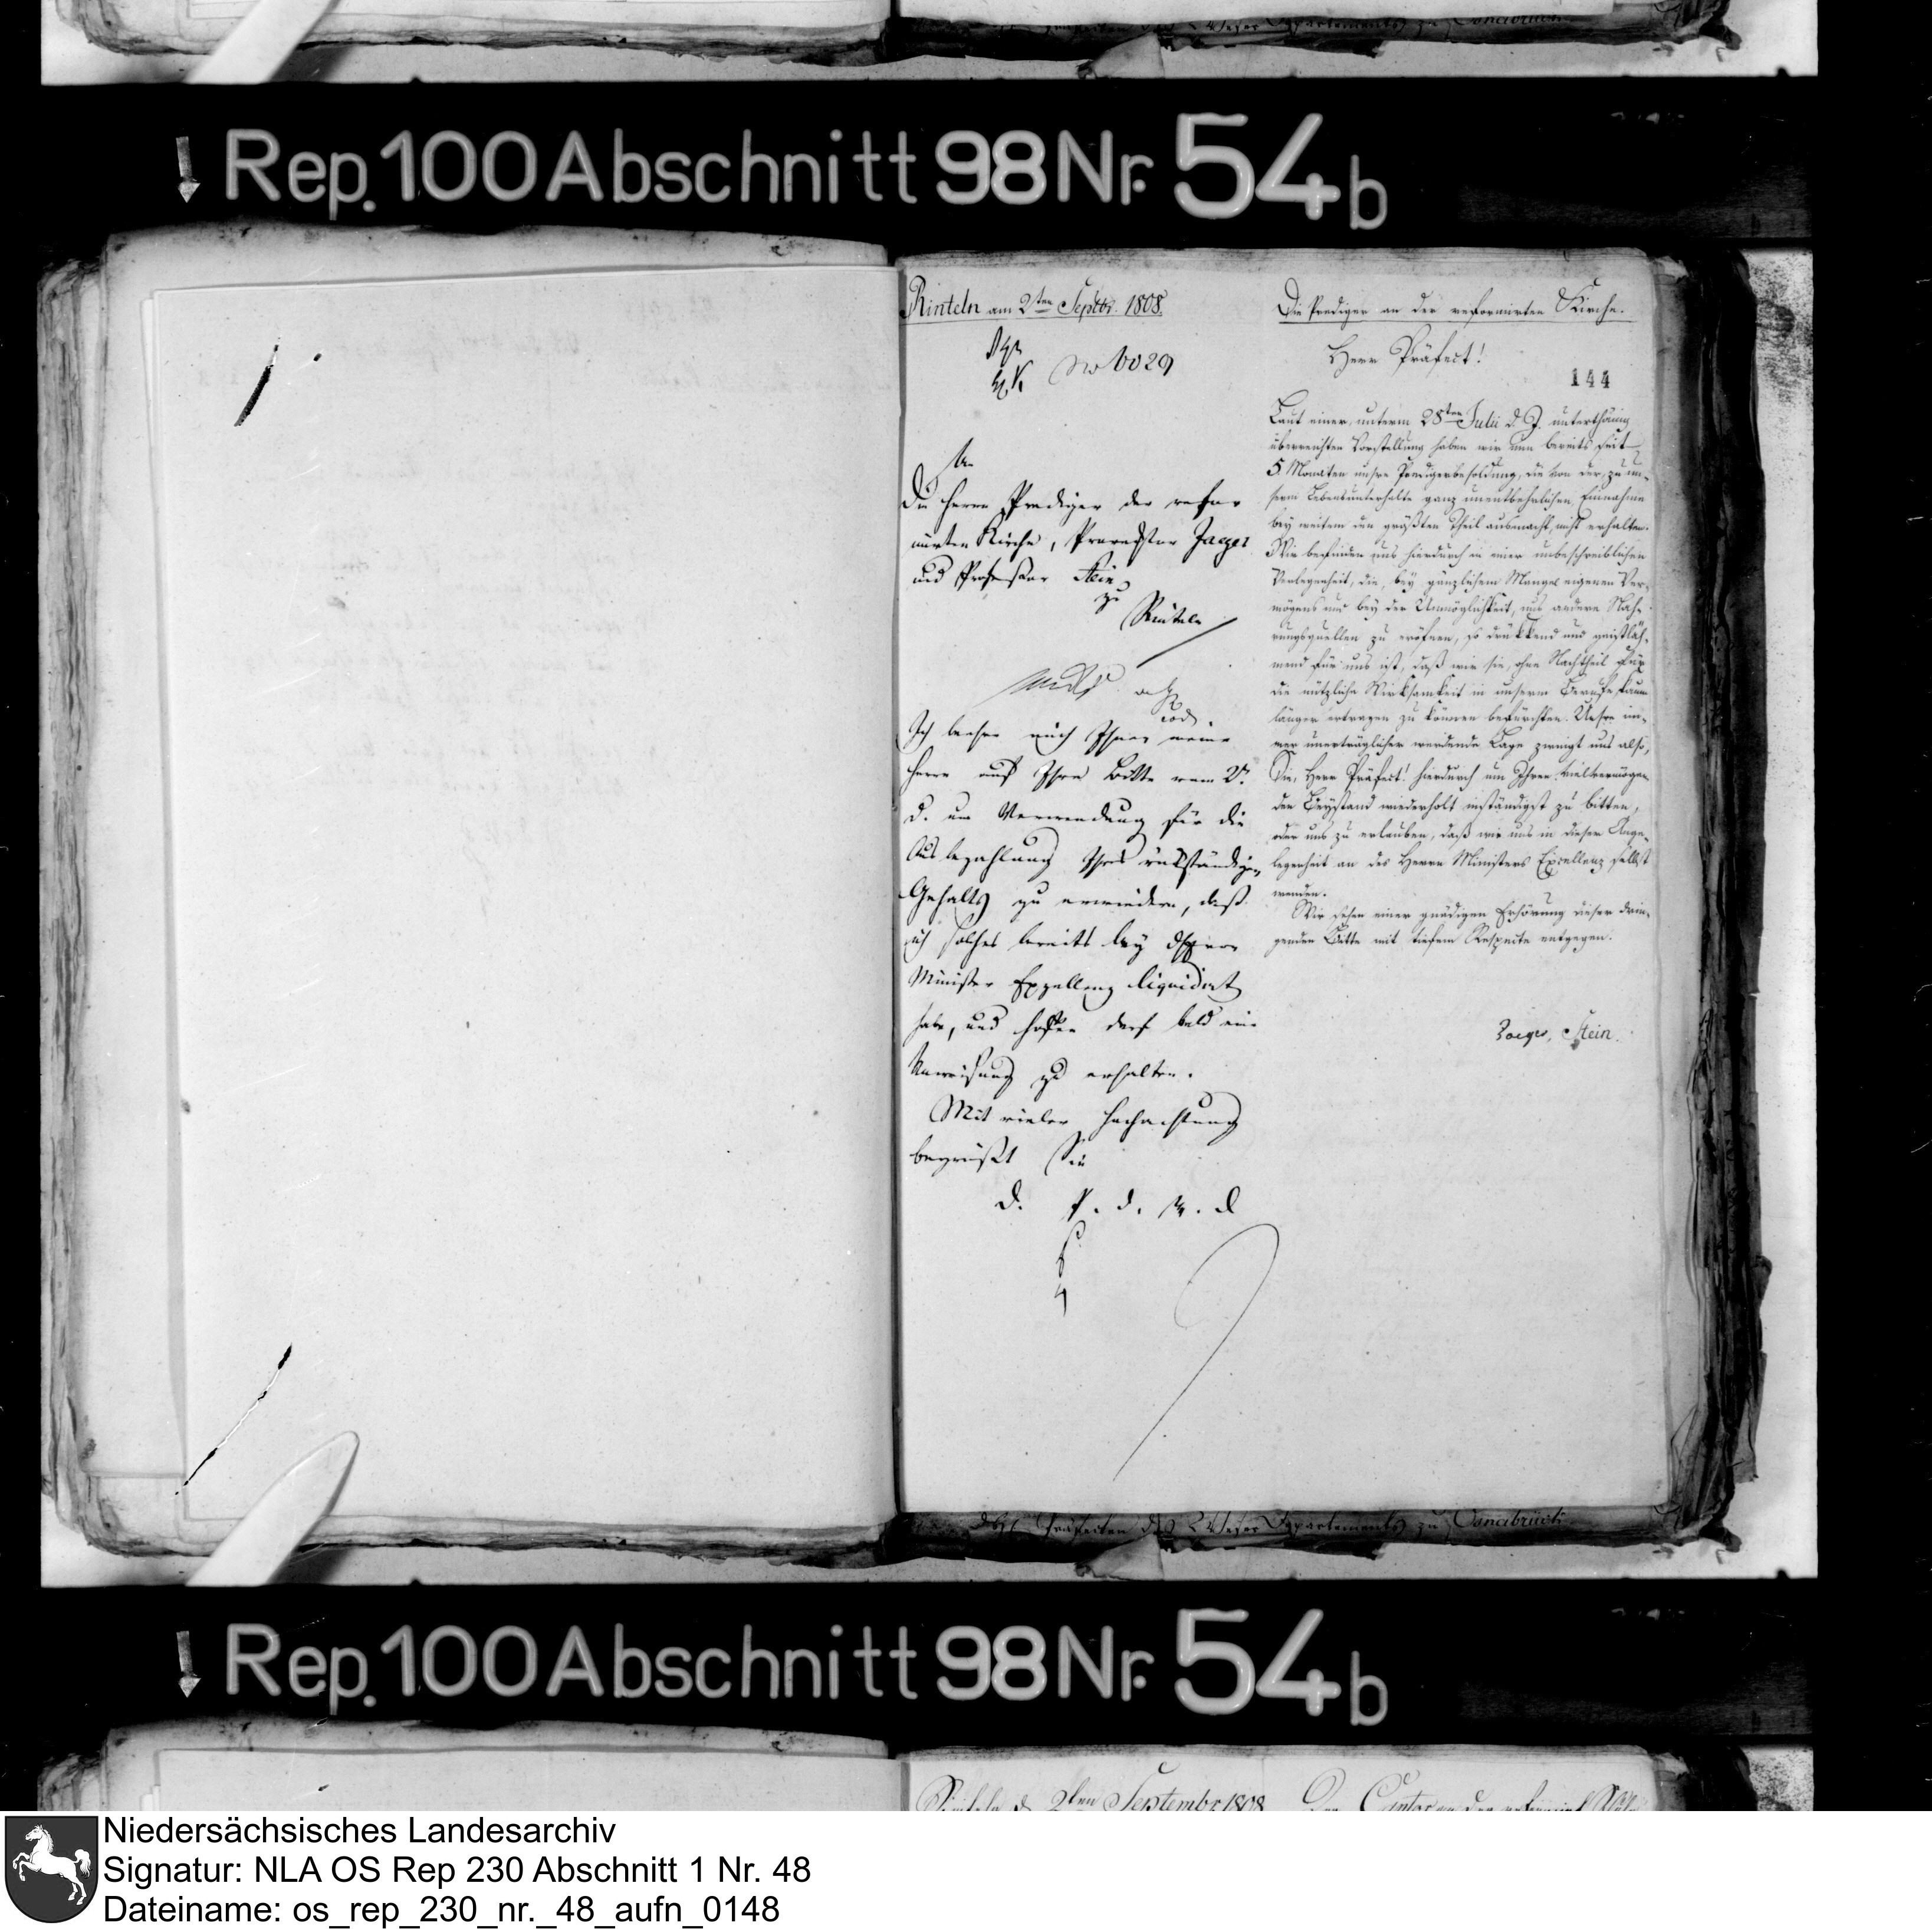 Departements zu Osnabrück
Rep. 100 Abschnitt 98 Nr. 54b
Rinteln am 2ten Septbr. 1808.
No 6029
An
Die Herren Prediger der refor
mirten Kirche, Prorector Jaeger
und Professor Stein
zu
Rinteln
Ich beehre mich Ihnen meine
Herrn auf Ihre Bitte vom 2n
d. um Verwendung für die
Ausbezahlung Ihres rückständigen
Gehalts zu erwiedern, daß
ich solches bereits bey des Herrn
Minister Exzellenz liquidirt
habe, und hoffen darf bald eine
Anweisung zu erhalten.
Mit vieler Hochachtung
begrüßt Sie
d. P. d. W. d
Die Prediger an der reformirten Kirche.
Herr Präfect!
144
Laut einer, unterm 28ten Julii d. J. unterthänig
überreichten Vorstellung haben wir nun bereits seit
5. Monaten unsre Predigerbesoldung, die von der, zu un-
serm Lebensunterhalte ganz unentbehrlichen Einnahme
bey weitem den größten Theil ausmacht, nicht erhalten.
Wir befinden uns hierdurch in einer unbeschreiblichen
Verlegenheit, die, bey gänzlichem Mangel eigenen Ver-
mögens und bey der Unmöglichkeit, uns andere Nah-
rungsquellen zu eröfnen, so drükkend und geistläh-
mend für uns ist, daß wir sie, ohne Nachtheil für
die nützliche Wirksamkeit in unserm Berufe, kaum
länger ertragen zu können befürchten. Unsre im-
mer unerträglicher werdende Lage zwingt uns also,
Sie, Herr Präfect! hierdurch um Ihren vielvermögen-
den Beystand wiederholt inständigst zu bitten,
oder uns zu erlauben, daß wir uns in dieser Ange-
legenheit an des Herrn Ministers Excellenz selbst
wenden.
Wir sehen einer gnädigen Erhörung dieser drin-
genden Bitte mit tiefem Respecte entgegen.
Jaeger, Stein.
Präfecten des Weser Departements zu Osnabrück
Rep. 100 Abschnitt 98 Nr. 54b
Rinteln d. 2ten Septembr 1808
Der Cantor an der reformirt
Niedersächsisches Landesarchiv
Signatur: NLA OS Rep 230 Abschnitt 1 Nr. 48
Dateiname: os_rep_230_nr._48_aufn_0148